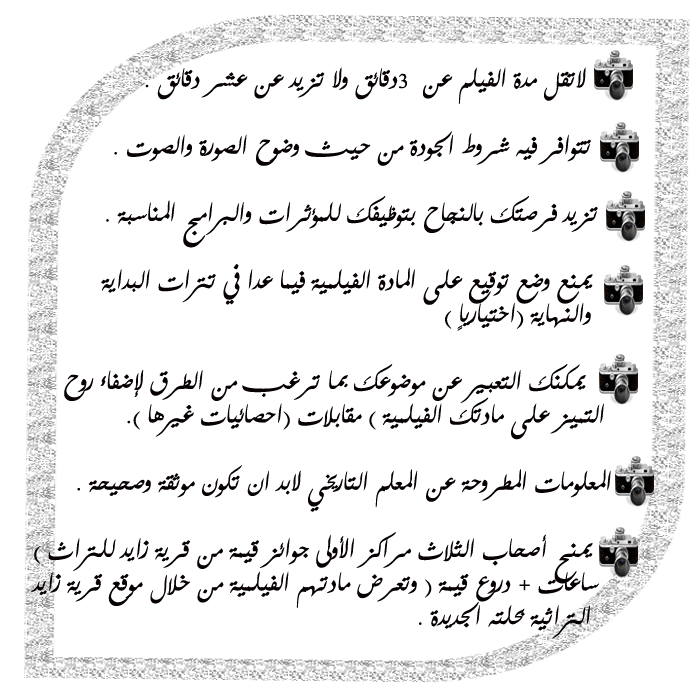 لاتقل مدة الفيلم عن 3دقائق ولا تزيد عن عشر دقائق .
تتوافر فيه شروط الجودة من حيث وضوح الصورة والصوت .
تزيد فرصتك بالنجاح بتوظيفك للمؤثرات والبرامج المناسبة .
يمنع وضع توقيع على المادة الفيلمية فيما عدا في تترات البداية
والنهاية (اختيارياً )
يمكنك التعبير عن موضوعك بما ترغب من الطرق لإضفاء روح
التميز على مادتك الفيلمية ) مقابلات (احصائيات غيرها ).
المعلومات المطروحة عن المعلم التاريخي لابد ان تكون موثقة وصحيحة .
يمنح أصحاب الثلاث مراكز الأولى جوائز قيمة من قرية زايد للتراث )
ساعات + دروع قيمة ( وتعرض مادتهم الفيلمية من خلال موقع قرية زايد
التراثية بحلته الجديدة .